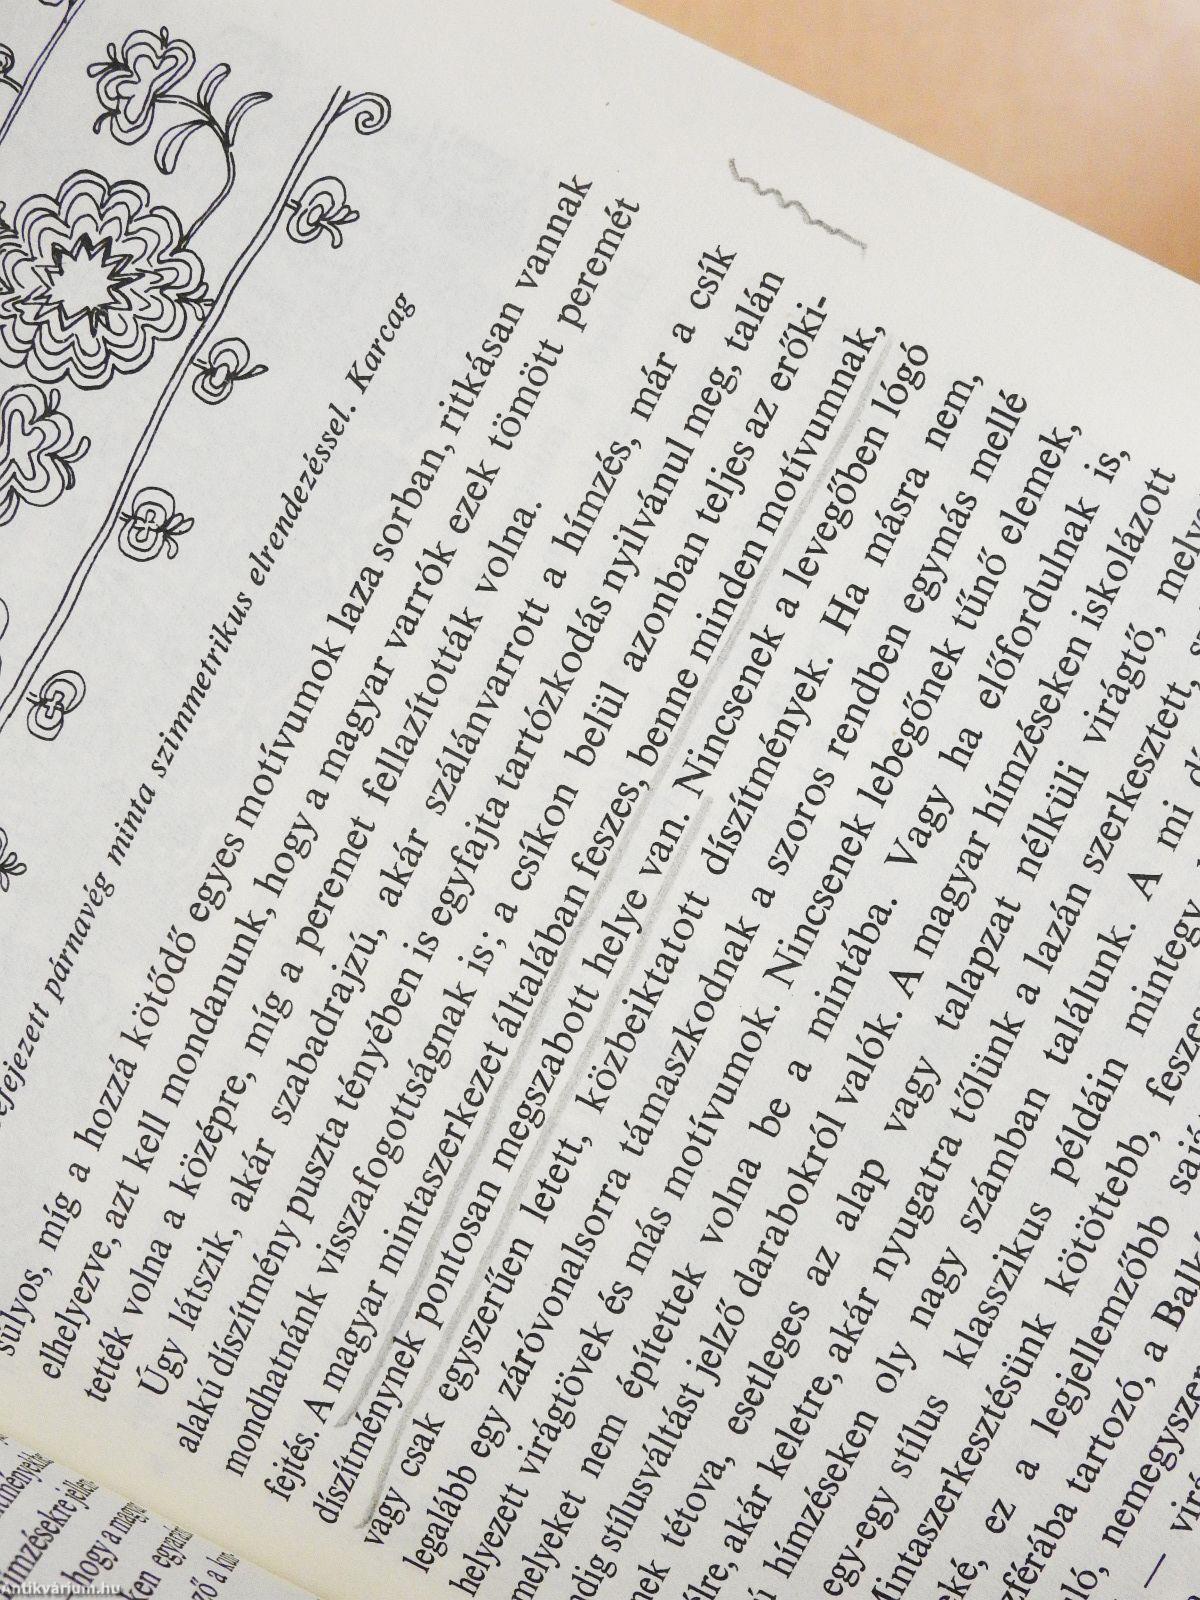 efejezett párnavég minta szimmetrikus elrendezéssel. Karcag
súlyos, míg a hozzá kötődő egyes motívumok laza sorban, ritkásan vannak
elhelyezve, azt kell mondanunk, hogy a magyar varrók ezek tömött peremét
tették volna a középre, míg a peremet fellazították volna.
Úgy látszik, akár szabadrajzú, akár szálánvarrott a hímzés, már a csík
alakú díszítmény puszta tényében is egyfajta tartózkodás nyilvánul meg, talán
mondhatnánk visszafogottságnak is; a csíkon belül azonban teljes az erőki-
fejtés. A magyar mintaszerkezet általában feszes, benne minden motívumnak,
díszítménynek pontosan megszabott helye van. Nincsenek a levegőben lógó
vagy csak egyszerűen letett, közbeiktatott díszítmények. Ha másra nem,
legalább egy záróvonalsorra támaszkodnak a szoros rendben egymás mellé
helyezett virágtövek és más motívumok. Nincsenek lebegőnek tűnő elemek,
melyeket nem építettek volna be a mintába. Vagy ha előfordulnak is,
ndig stílusváltást jelző darabokról valók. A magyar hímzéseken iskolázott
nek tétova, esetleges az alap vagy talapzat nélküli virágtő, melye
élre, akár keletre, akár nyugatra tőlünk a lazán szerkesztett, s
ú hímzéseken oly nagy számban találunk. A mi d
egy-egy stílus klasszikus példáin mintegy
Mintaszerkesztésünk kötöttebb, feszes
eké, ez a legjellemzőbb sajá
zférába tartozó, a Balk
ló, nemegyszer
— virá
ményekbe
ímzésekre jelle
hogy a magya
ken egyarán
ző a kun
Antikvárium.hu